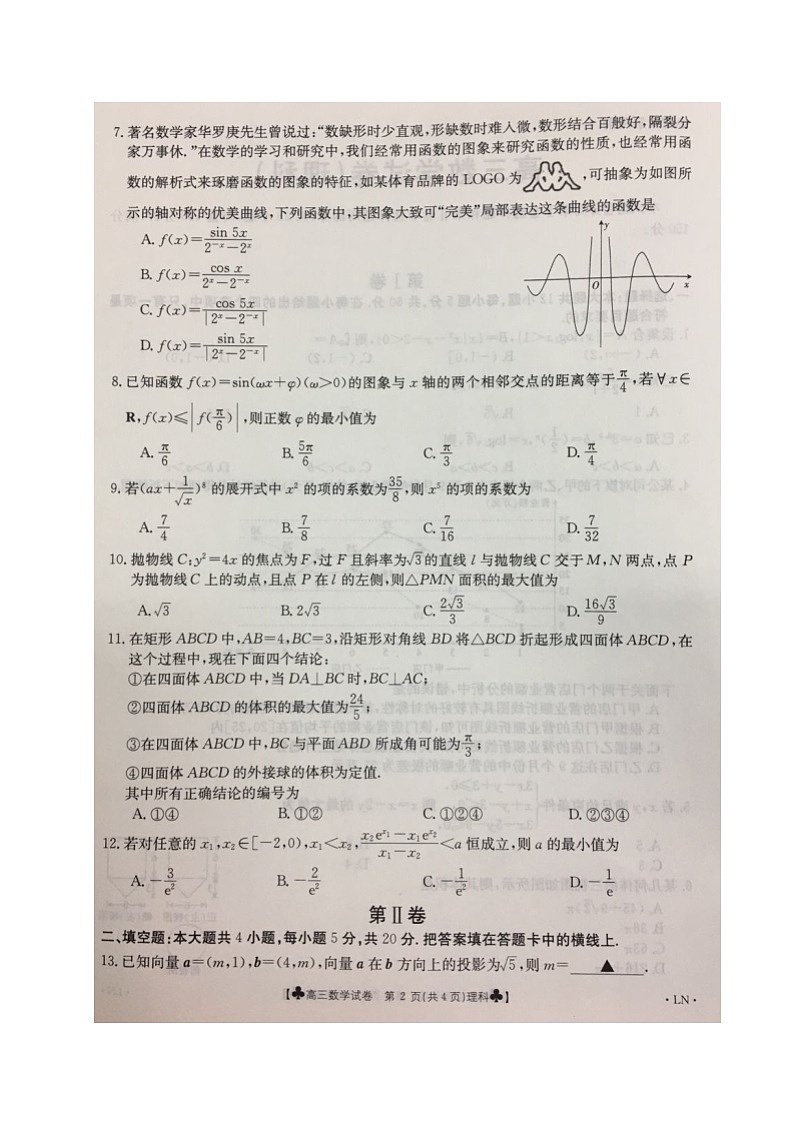 7.著名数学家华罗庚先生曾说过:“数缺形时少直观,形缺数时难入微,数形结合百般好,隔裂分
家万事休.”在数学的学习和研究中,我们经常用函数的图象来研究函数的性质,也经常用函
数的解析式来琢磨函数的图象的特征,如某体育品牌的LOGO为 ,可抽象为如图所
示的轴对称的优美曲线,下列函数中,其图象大致可“完美”局部表达这条曲线的函数是
A. f(x)=sin 5x/(2^{-x}-2^{x})
B. f(x)=cos x/(2^{x}-2^{-x})
C. f(x)=cos 5x/|2^{x}-2^{-x}|
D. f(x)=sin 5x/|2^{x}-2^{-x}|
y
O
x
8.已知函数 f(x)=sin(ωx+φ)(ω>0)的图象与 x 轴的两个相邻交点的距离等于π/4,若∀x∈
R,f(x)≤|f(π/6)|,则正数 φ 的最小值为
A. π/6 B. 5π/6 C. π/3 D. π/4
9.若(ax+1/√x)^{8} 的展开式中 x^{2} 的项的系数为35/8,则 x^{5} 的项的系数为
A. 7/4 B. 7/8 C. 7/16 D. 7/32
10.抛物线 C:y^{2}=4x 的焦点为 F,过 F 且斜率为√3的直线 l 与抛物线 C 交于 M,N 两点,点 P
为抛物线 C 上的动点,且点 P 在 l 的左侧,则△PMN 面积的最大值为
A. √3 B. 2√3 C. 2√3/3 D. 16√3/9
11.在矩形 ABCD 中,AB=4,BC=3,沿矩形对角线 BD 将△BCD 折起形成四面体 ABCD,在
这个过程中,现在下面四个结论:
①在四面体 ABCD 中,当 DA⊥BC 时,BC⊥AC;
②四面体 ABCD 的体积的最大值为24/5;
③在四面体 ABCD 中,BC 与平面 ABD 所成角可能为π/3;
④四面体 ABCD 的外接球的体积为定值.
其中所有正确结论的编号为
A. ①④ B. ①② C. ①②④ D. ②③④
12.若对任意的 x₁,x₂∈[-2,0),x₁<x₂,(x₂e^{x₁}-x₁e^{x₂})/(x₁-x₂)<a 恒成立,则 a 的最小值为
A. -3/e^{2} B. -2/e^{2} C. -1/e^{2} D. -1/e
第Ⅱ卷
二、填空题:本大题共 4 小题,每小题 5 分,共 20 分.把答案填在答题卡中的横线上.
13.已知向量 a=(m,1),b=(4,m),向量 a 在 b 方向上的投影为√5,则 m=___▲___.
【♣高三数学试卷 第 2 页(共 4 页)理科♣】
·LN·